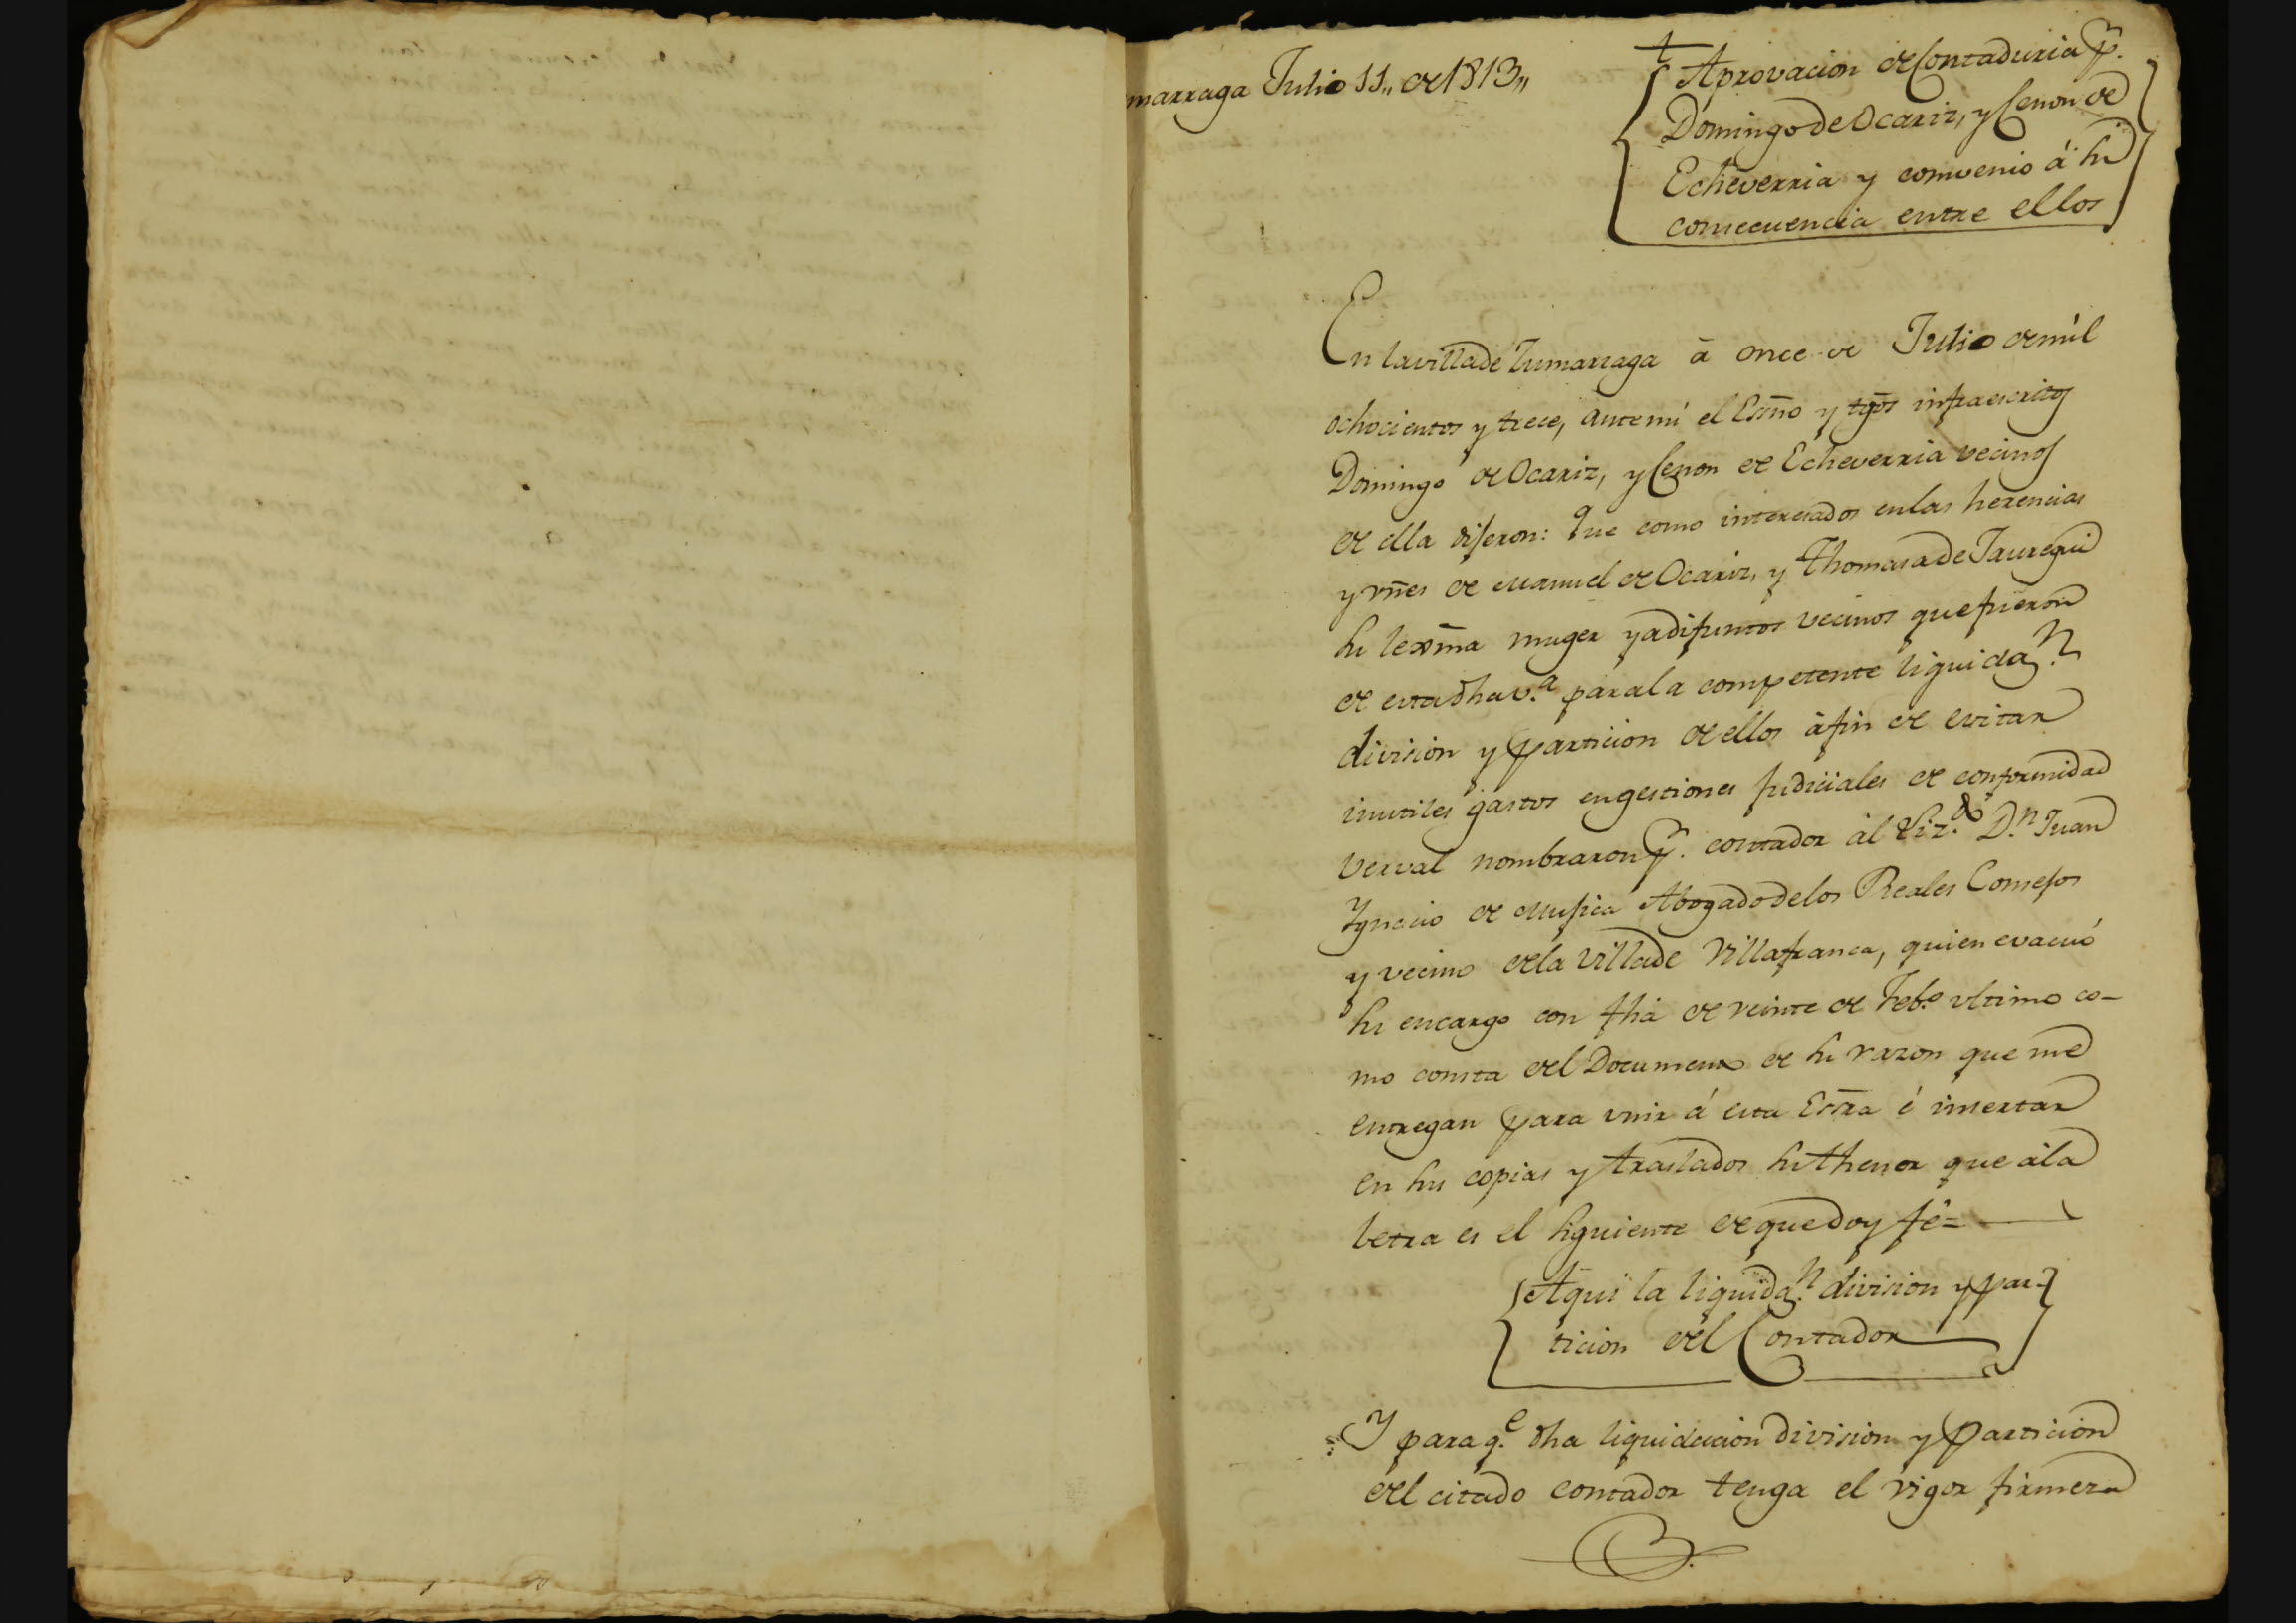 marraga Julio 11,, de 1813,,
Aprovacion de Contaduria p.r
Domingo de Ocariz, y Cenon de
Echeverria y convenio á su
consecuencia entre ellos
En la villa de Zumarraga á once de Julio de mil
ochocientos y trece, ante mi el Esno y tgos infraescritos
Domingo de Ocariz, y Cenon de Echeverria vecinos
de ella dijeron: Que como interesados en las herencias
y vnes de Manuel de Ocariz, y Thomasa de Jauregui
su lexma muger ya difuntos vecinos que fueron
de esta dha v.a para la competente liquidaz.n
division y particion de ellos á fin de evitar
inutiles gastos en gestiones judiciales de conformidad
verval nombraron p.r contador al Liz.do D.n Juan
Ygnacio de Mujica Abogado de los Reales Consejos
y vecino de la Villa de Villafranca, quien evacuó
su encargo con fha de veinte de Feb.o vltimo co-
mo consta del Documento de su razon que me
entregan para vnir á esta Essra é insertar
en sus copias y traslados su thenor que á la
letra es el siguiente de que doy fé=
Aqui la liquidaz.n division y par-
ticion del Contador
Y para q.e dha liquidacion division y particion
del citado contador tenga el vigor firmeza